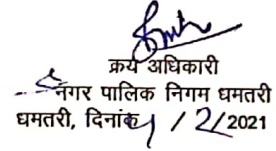 क्रय अधिकारी
नगर पालिक निगम धमतरी
धमतरी, दिनांक / 2/2021